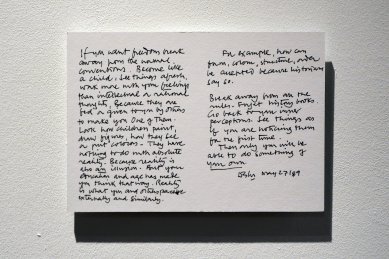 If you want freedom break
away from the normal
conventions. Become like
a child; see things afresh,
work more with your feelings
than intellectual or rational
thoughts. Because they are
fed or given to you by others
to make you one of them.
Look how children paint,
draw figures, how they feel
or put colours. They have
nothing to do with absolute
reality. Because reality is
also an illusion. And your
education and age has make
you think that way. Reality
is what you and others perceive
externally and similarly.
For example, how can
form, colour, structure, order
be accepted because historians
say so.
Break away from all the
rules. Forget history books
Go back to your inner
perceptions. See things as
if you are noticing them
for the first time.
Then only you will be
able to do something of
your own
May 27/89